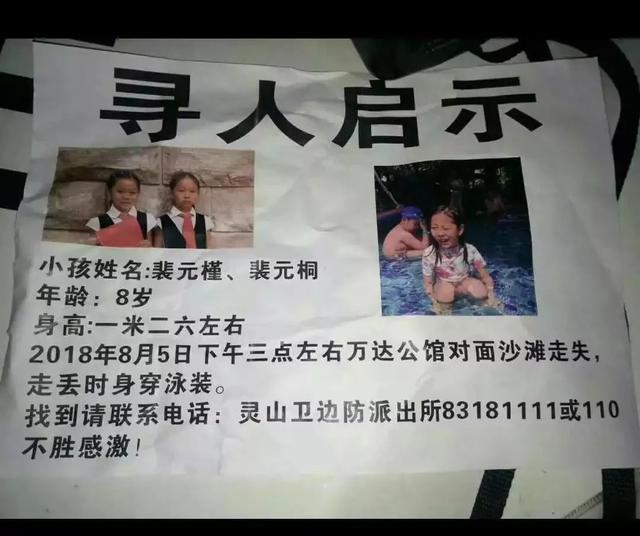 寻人启示
小孩姓名:裴元槿、裴元桐
年龄：8岁
身高:一米二六左右
2018年8月5日下午三点左右万达公馆对面沙滩走失,
走丢时身穿泳装。
找到请联系电话：灵山卫边防派出所83181111或110
不胜感激！